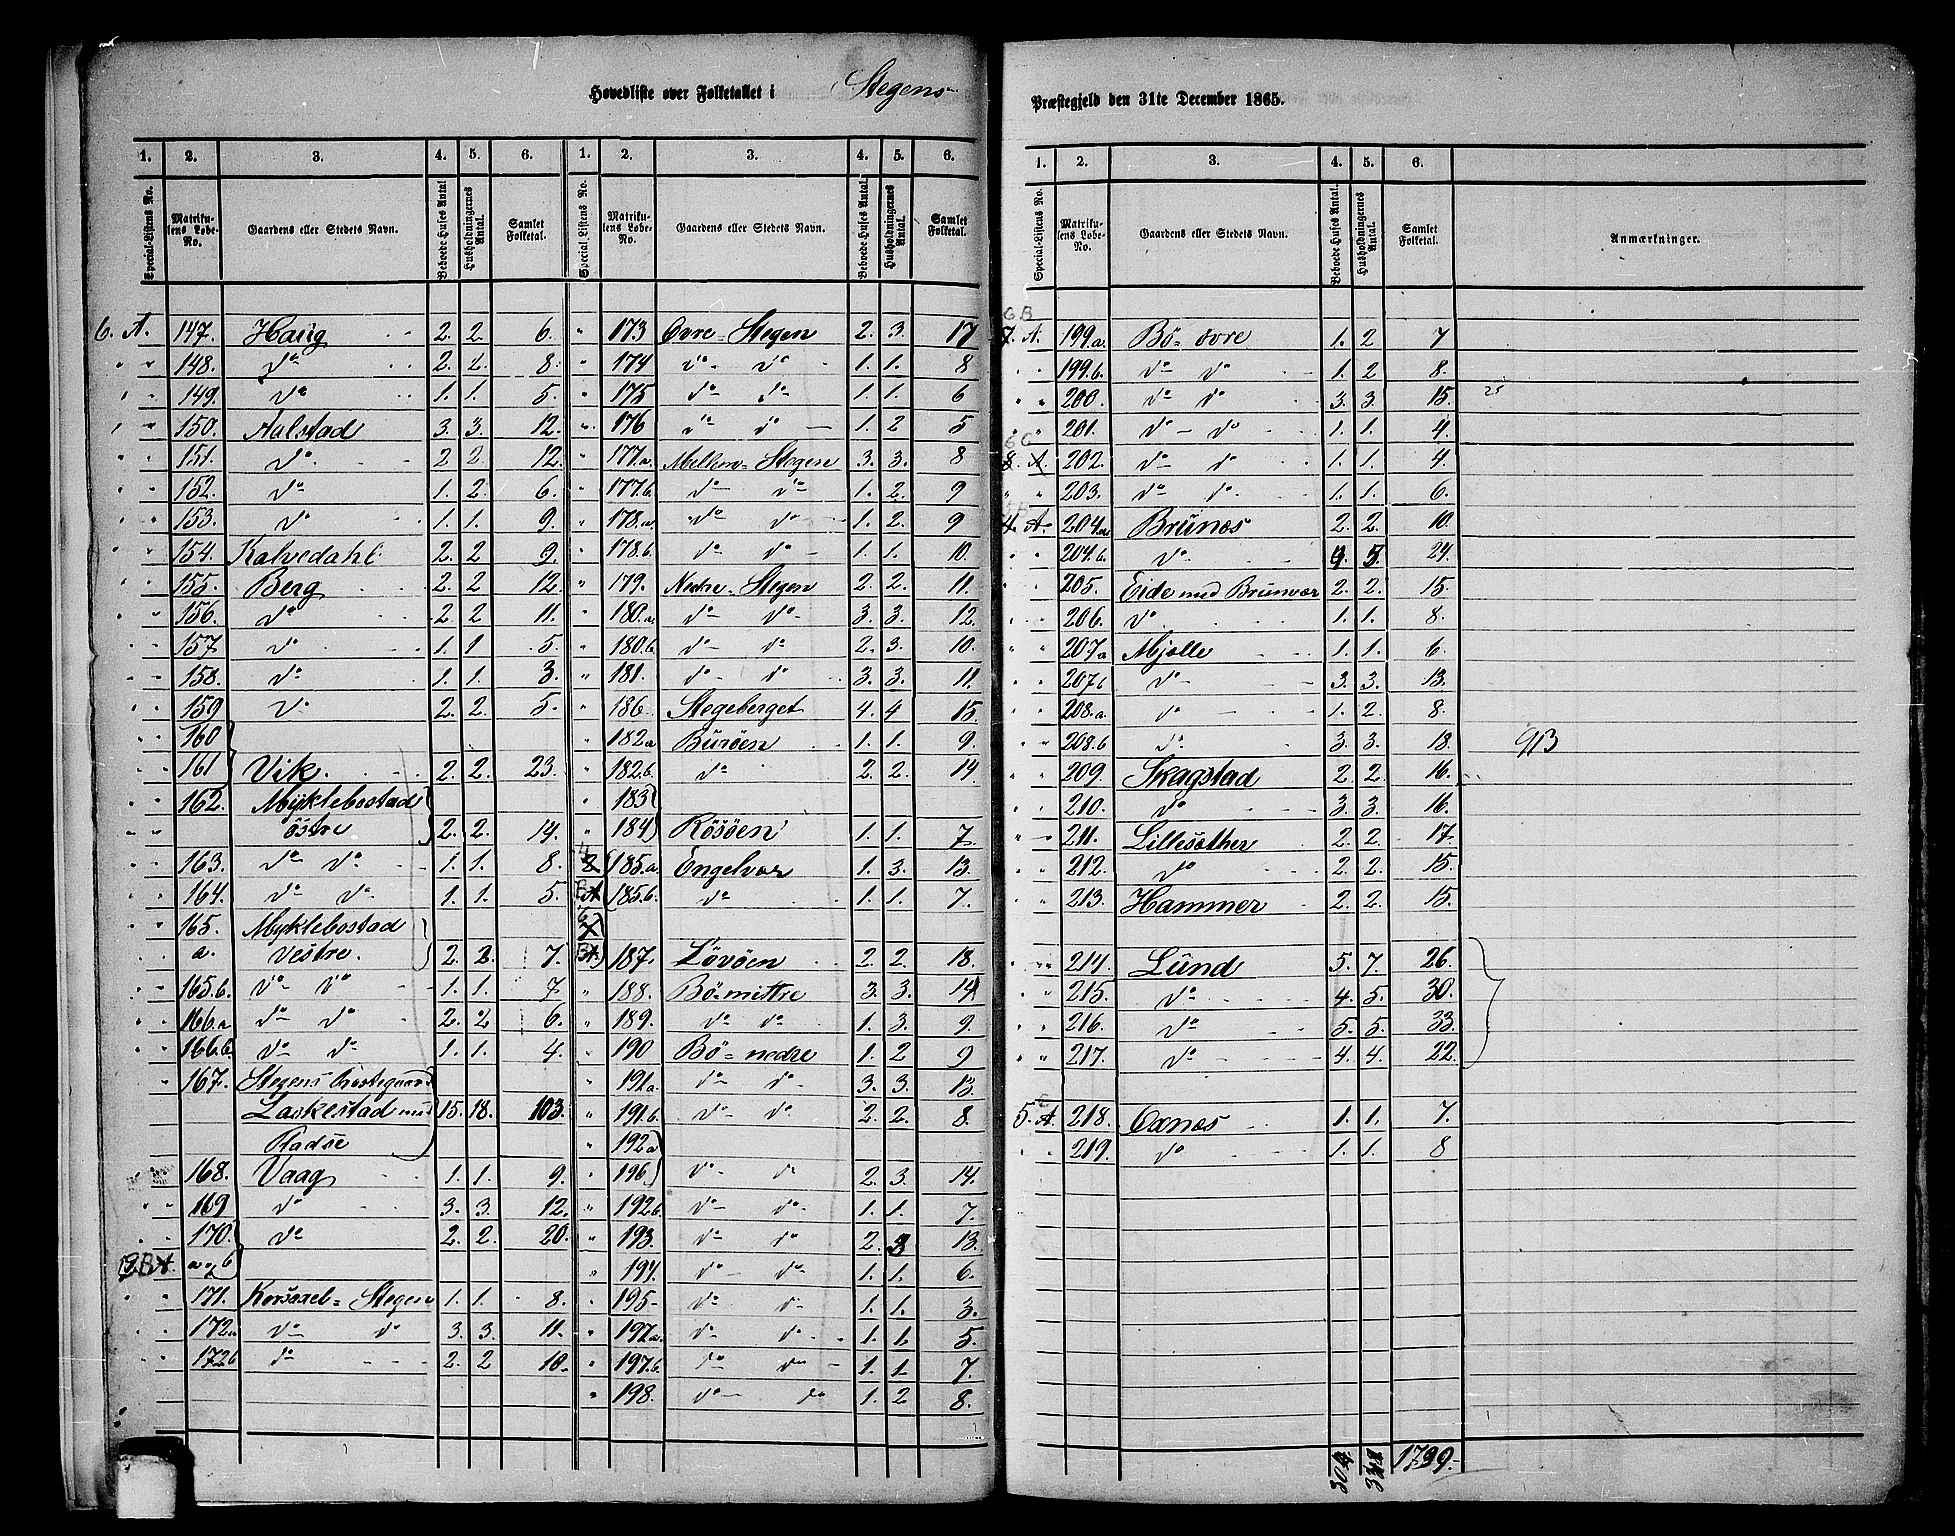 Hovedliste over Folketallet i Stegens
Præstegjeld den 31te December 1865.
1. 2. 3. 4. 5. 6. 1. 2. 3. 4. 5. 6.
Special-Listens No. Matrikulens Løbe-No. Gaardens eller Stedets Navn. Beboede Huses Antal Husholdningernes Antal. Samlet Folketal. Special-Listens No. Matrikulens Løbe-No. Gaardens eller Stedets Navn. Beboede Huses Antal. Husholdningernes Antal. Samlet Folketal.
6. A. 147. Haug 2. 2. 6.
" " 148. do 2. 2. 8.
" " 149. do 1. 1. 5.
" " 150. Aalstad 3. 3. 12.
" " 151. do 2. 2. 12.
" " 152. do 1. 2. 6.
" " 153. do 1. 1. 9.
" " 154. Kalvedahl 2. 2. 9.
" " 155. Berg 2. 2 12.
" " 156. do 2. 2 11.
" " 157. do 1. 1 5.
" " 158. do 1. 1. 3.
" " 159 do 2. 2. 5.
" " 160
" " 161 Vik 2. 2. 23.
" " 162. Myklebostad
østre 2. 2. 14.
" " 163. do do 1. 1. 8.
" " 164. do do 1. 1. 5.
" " 165. Myklebostad
a. vestre. 2. 2. 7.
165.b. do do 1. 1. 7
166.a do do 2. 2 6.
166.b do do 1. 1. 4.
167. Stegens Præstegaard
Laskestad med 15. 18. 103.
Radsø
168. Vaag 1. 1. 9.
169 do 3. 3. 12.
170. do 2. 2. 20.
a og b
171. Korsaxel-Stegen 1. 1. 8.
172a do do 3. 3. 11.
172b do 2. 2 10.
" 173 Øvre-Stegen 2. 3. 17
" 174 do do 1. 1. 8
" 175 do do 1. 1. 6
" 176 do do 1. 2 5
" 177.a. Mellem-Stegen 3. 3. 8
" 177.b. do do 1. 2. 9
" 178.a. do do 1. 2. 9
" 178.b. do do 1. 1. 10.
" 179. Nedre-Stegen 2. 2. 11.
" 180.a. do do 3. 3. 12.
" 180.b do do 2. 3. 10.
" 181. do do 3. 3. 11.
" 186 Stegeberget 4. 4 15.
" 182a Burøen 1. 1. 9.
" 182.b. do 2. 2. 14
" 183
" 184 Røsøen 1. 1. 7.
185.a Engelvær 1. 3. 13.
185.b. do 1. 1. 7.
187. Løvøen 2. 2. 18.
" 188. Bø-mittre 3. 3. 14
" 189. do do 1. 3. 9.
190 Bø-nedre 1. 2 9
" 191a. do do 3. 3. 13.
" 191.b. do do 2. 2. 8.
" 192a
" 196. do do 2. 3. 14.
" 192b. do do 1. 1. 7.
" 193. do do 2. 3 13.
" 194. do do 1. 1. 6.
" 195 do do 1. 1. 3.
" 197.a. do do 1. 1. 5.
" 197.b. do do 1. 1. 7.
" 198. do do 1. 2 8.
1. 2. 3. 4. 5. 6.
Special-Listens No. Matrikulens Løbe-No. Gaardens eller Stedets Navn. Beboede Huses Antal. Husholdningernes Antal. Samlet Folketal. Anmærkninger.
6B
7. A. 199.a. Bø-øvre 1. 2 7
" " 199.b. do do 1. 2 8.
" " 200. do do 3. 3. 15. 25
" " 201. do do 1. 1. 4.
6C
8. A. 202. do do 1. 1. 4.
" " 203. do do 1. 1. 6.
4. A. 204.a. Brunæs 2. 2. 10.
" " 204.b. do 4. 5. 24.
" " 205. Eide med Brunvær 2. 2. 15.
" " 206. do 1. 1. 8.
" " 207.a Mjelle 1. 1. 6.
" " 207b do 3. 3. 13.
" " 208.a. do 1. 2. 8.
" " 208.b do 3. 3. 18. 913
" " 209. Skagstad 2. 2. 16.
" " 210. do 3. 3. 16.
" " 211. Lillesæther 2. 2. 17.
" " 212. do 2. 2. 15.
" " 213. Hammer 2. 2. 15.
" " 214. Lund 5. 7. 26.
" " 215. do 4. 5. 30.
" " 216. do 5. 5. 33.
" " 217. do 4. 4. 22.
5. A. 218. Oxnæs 1. 1. 7.
" " 219. do 1. 1. 8
1739.